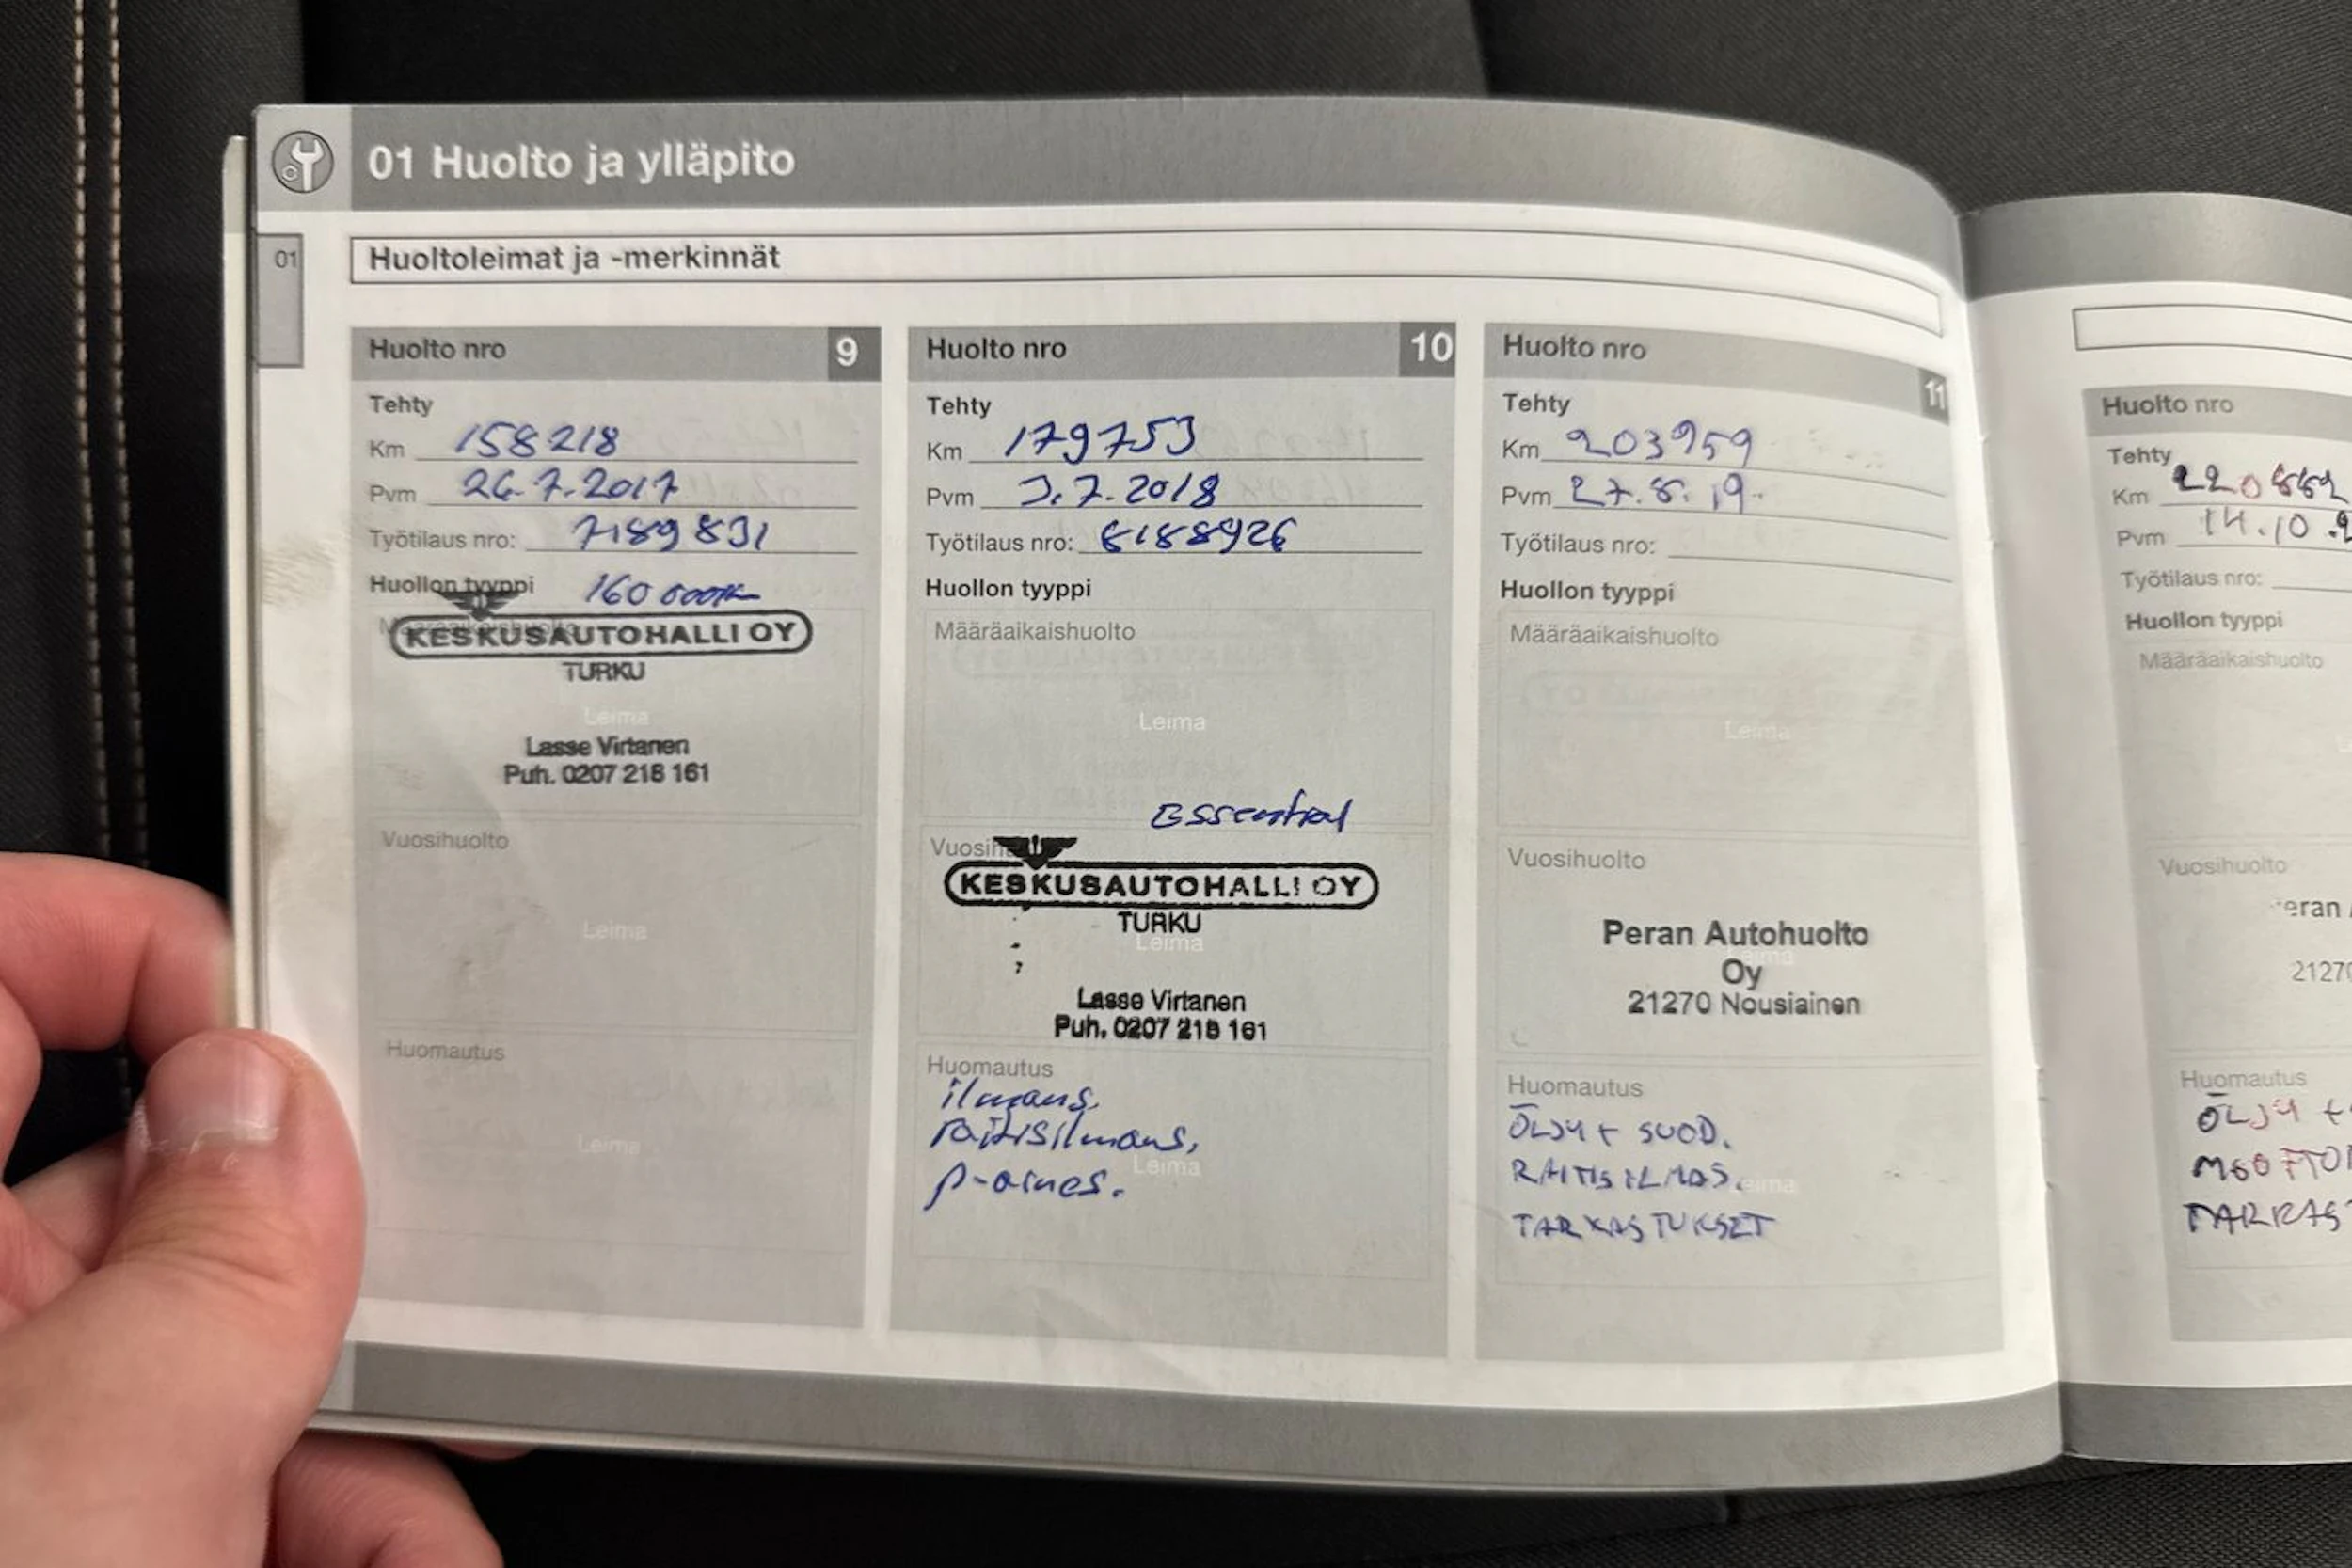 01 Huolto ja ylläpito
01
Huoltoleimat ja -merkinnät
Huolto nro 9
Tehty
Km 158218
Pvm 26.7.2017
Työtilaus nro: 7189831
Huollon tyyppi 160 000
Määräaikaishuolto
KESKUSAUTOHALLI OY
TURKU
Leima
Lasse Virtanen
Puh. 0207 218 161
Vuosihuolto
Leima
Huomautus
Leima
Huolto nro 10
Tehty
Km 179753
Pvm 3.7.2018
Työtilaus nro: 8188926
Huollon tyyppi
Määräaikaishuolto
Leima
Essential
KESKUSAUTOHALLI OY
TURKU
Leima
Lasse Virtanen
Puh. 0207 218 161
Huomautus
ilmans,
raitisilmans,
Leima
p-aines.
Huolto nro 11
Tehty
Km 203959
Pvm 27.8.19.
Työtilaus nro:
Huollon tyyppi
Määräaikaishuolto
Leima
Vuosihuolto
Peran Autohuolto
Oy
21270 Nousiainen
Huomautus
ÖLJY + SUOD.
RAITISILMAS.
TARKASTUKSET
Huolto nro
Tehty
Km
Pvm 14.10.
Työtilaus nro:
Huollon tyyppi
Määräaikaishuolto
Vuosihuolto
eran
2127
Huomautus
ÖLJY +